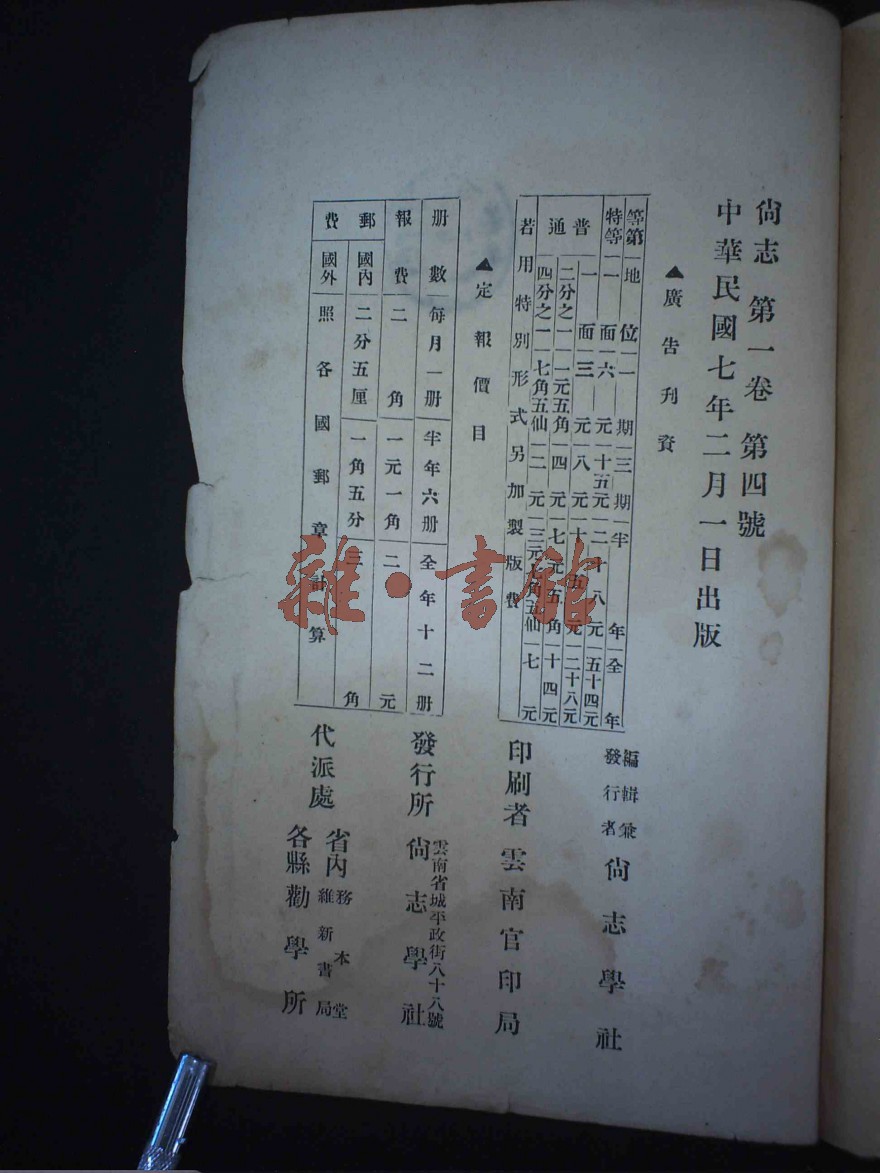 尙志 第一卷 第四號
中華民國七年二月一日出版
▲廣告刊資
等第 地位 一期 三期 半年 全年
特等 一面 六元 十五元 二十八元 五十四元
普通 一面 三元 八元 十五元 二十八元
二分之一 一元五角 四元 七元五角 十四元
四分之一 七角五仙 二元 三元七角五仙 七元
若用特別形式另加製版費
▲定報價目
册數 每月一册 半年六册 全年十二册
報費 二角 一元一角 二元
郵費 國內 二分五厘 一角五分 三角
國外 照各國郵章計算
編輯兼發行者 尙志學社
印刷者 雲南官印局
發行所 雲南省城平政街八十八號 尙志學社
代派處 省內 務本堂 維新書局
各縣勸學所
雜·書館